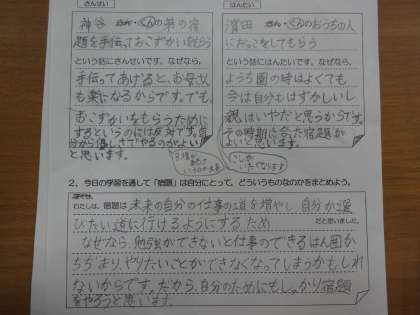 さんせい
神谷 さん・くんの弟の宿
題を手伝っておこずかいをもらう
という話にさんせいです。なぜなら、
手伝ってあげると、お母さん
も楽になるからです。でも、
おこずかいをもらうために
するというのには反対です。自
分から優しさでやるのがよい
と思います。
はんたい
濱田 さん・くんのおうちの人
にだっこをしてもらう
という話にはんたいです。なぜなら、
ようち園の時はよくても
今は自分もはずかしいし、
親はいやだと思うからです。
その時期に合った宿題が
よいと思います。
2、今日の学習を通して「宿題」は自分にとって、どういうものなのかをまとめよう。
わたしは、宿題は未来の自分の仕事の道を増やし、自分が選
びたい道に行けるようにするため
だと思いました。
なぜなら、勉強ができないと仕事のできるはん囲が
ちぢまり、やりたいことができなくなってしまうかもしれ
ないからです。だから、自分のためにもしっかり宿題
をやろうと思います。